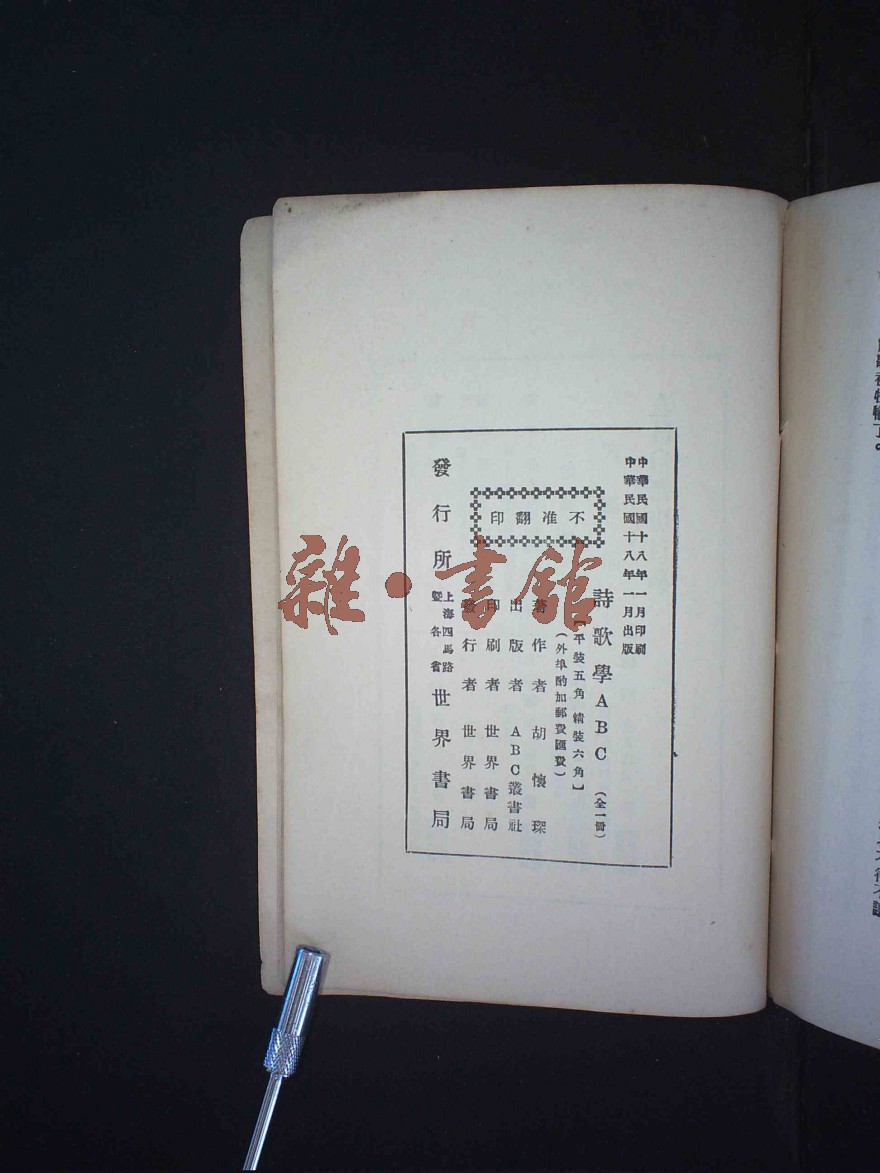 中華民國十八年一月印刷
中華民國十八年一月出版
詩歌學ABC（全一冊）
【平裝五角 精裝六角】
（外埠酌加郵費匯費）
不准翻印
著作者 胡懷琛
出版者 ABC叢書社
印刷者 世界書局
發行者 世界書局
發行所 上海四馬路
暨各省 世界書局
雜·書館